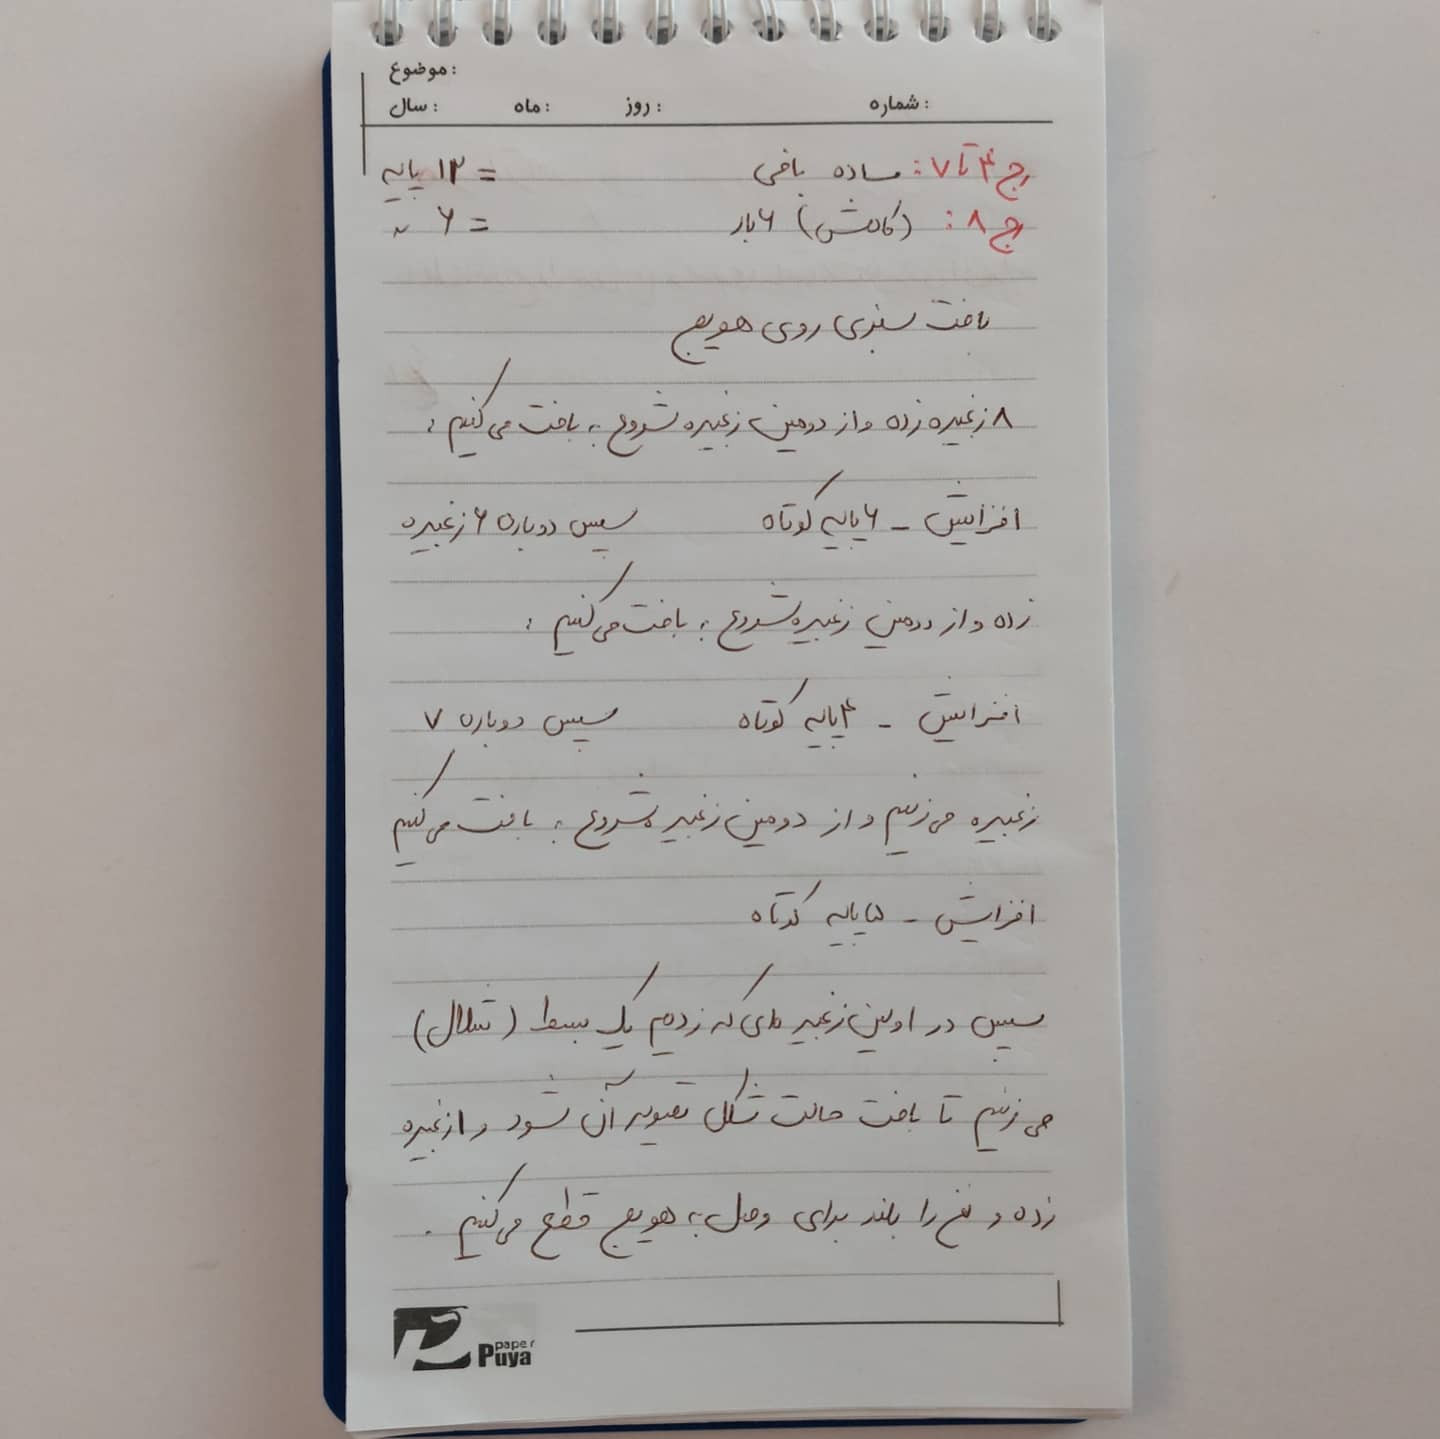 موضوع:
شماره: روز: ماه: سال:
رج ۴ تا ۷: ساده بافی = ۱۲ پایه
رج ۸: (کاهش) ۶ بار = ۶ ~
بافت سبزی روی هویج
۸ زنجیره زده و از دومین زنجیره شروع به بافت می‌کنیم:
افزایش - ۶ پایه کوتاه سپس دوباره ۶ زنجیره
زده و از دومین زنجیره شروع به بافت می‌کنیم:
افزایش - ۴ پایه کوتاه سپس دوباره ۷
زنجیره می‌زنیم و از دومین زنجیره شروع به بافت می‌کنیم
افزایش - ۵ پایه کوتاه
سپس در اولین زنجیره‌ای که زدیم یک بست (اتصال)
می‌زنیم تا بافت حالت شکل تصویر آن شود و ۱ زنجیره
زده و نخ را بلند برای وصل به هویج قطع می‌کنیم.
paper
Puya